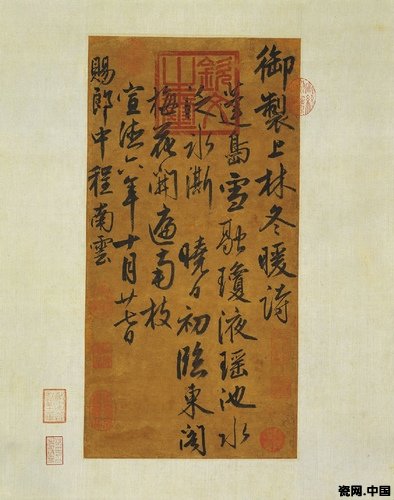 御製上林冬暖詩
蓬島雪融瓊液瑶池水
泛冰澌 曉日初臨東閣
梅花開遍南枝
宣德六年十月廿七日
賜郎中程南雲
瓷网.中国